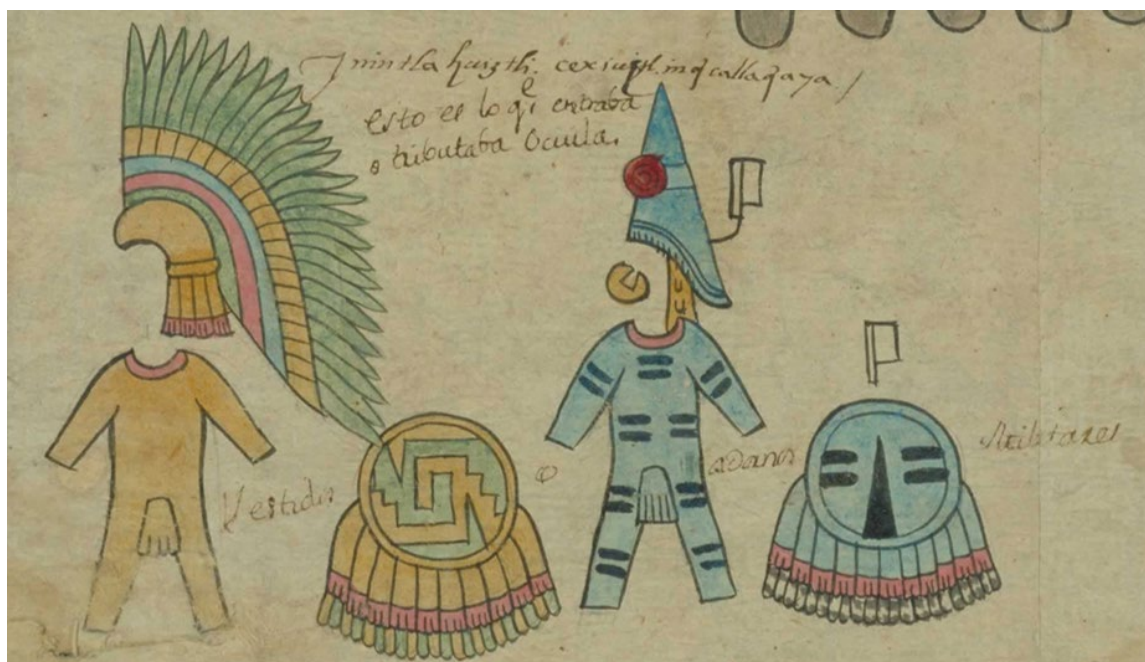 Ynintla huiztli. cexiuhtl. inqcallaqaya /
esto es lo qe entraba
o tributaba Ocuila.
Vestidos o adanos Militares